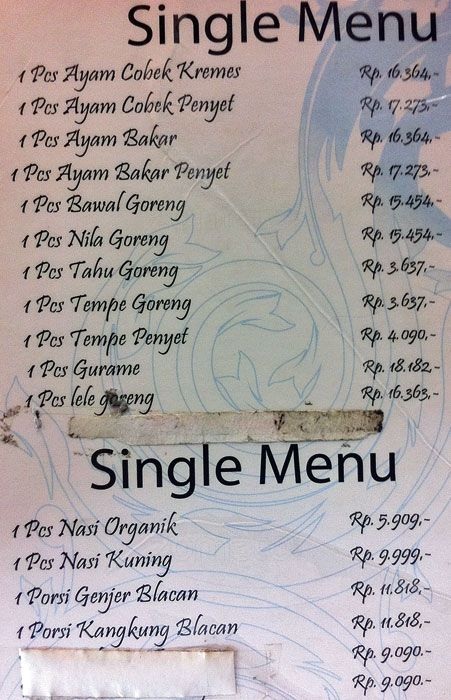 Single Menu
1 Pcs Ayam Cobek Kremes Rp. 16.364,-
1 Pcs Ayam Cobek Penyet Rp. 17.273,-
1 Pcs Ayam Bakar Rp. 16.364,-
1 Pcs Ayam Bakar Penyet Rp. 17.273,-
1 Pcs Bawal Goreng Rp. 15.454,-
1 Pcs Nila Goreng Rp. 15.454,-
1 Pcs Tahu Goreng Rp. 3.637,-
1 Pcs Tempe Goreng Rp. 3.637,-
1 Pcs Tempe Penyet Rp. 4.090,-
1 Pcs Gurame Rp. 18.182,-
1 Pcs lele goreng Rp. 16.363,-
Single Menu
1 Pcs Nasi Organik Rp. 5.909,-
1 Pcs Nasi Kuning Rp. 9.999,-
1 Porsi Genjer Blacan Rp. 11.818,-
1 Porsi Kangkung Blacan Rp. 11.818,-
Rp. 9.090,-
Rp. 9.090,-